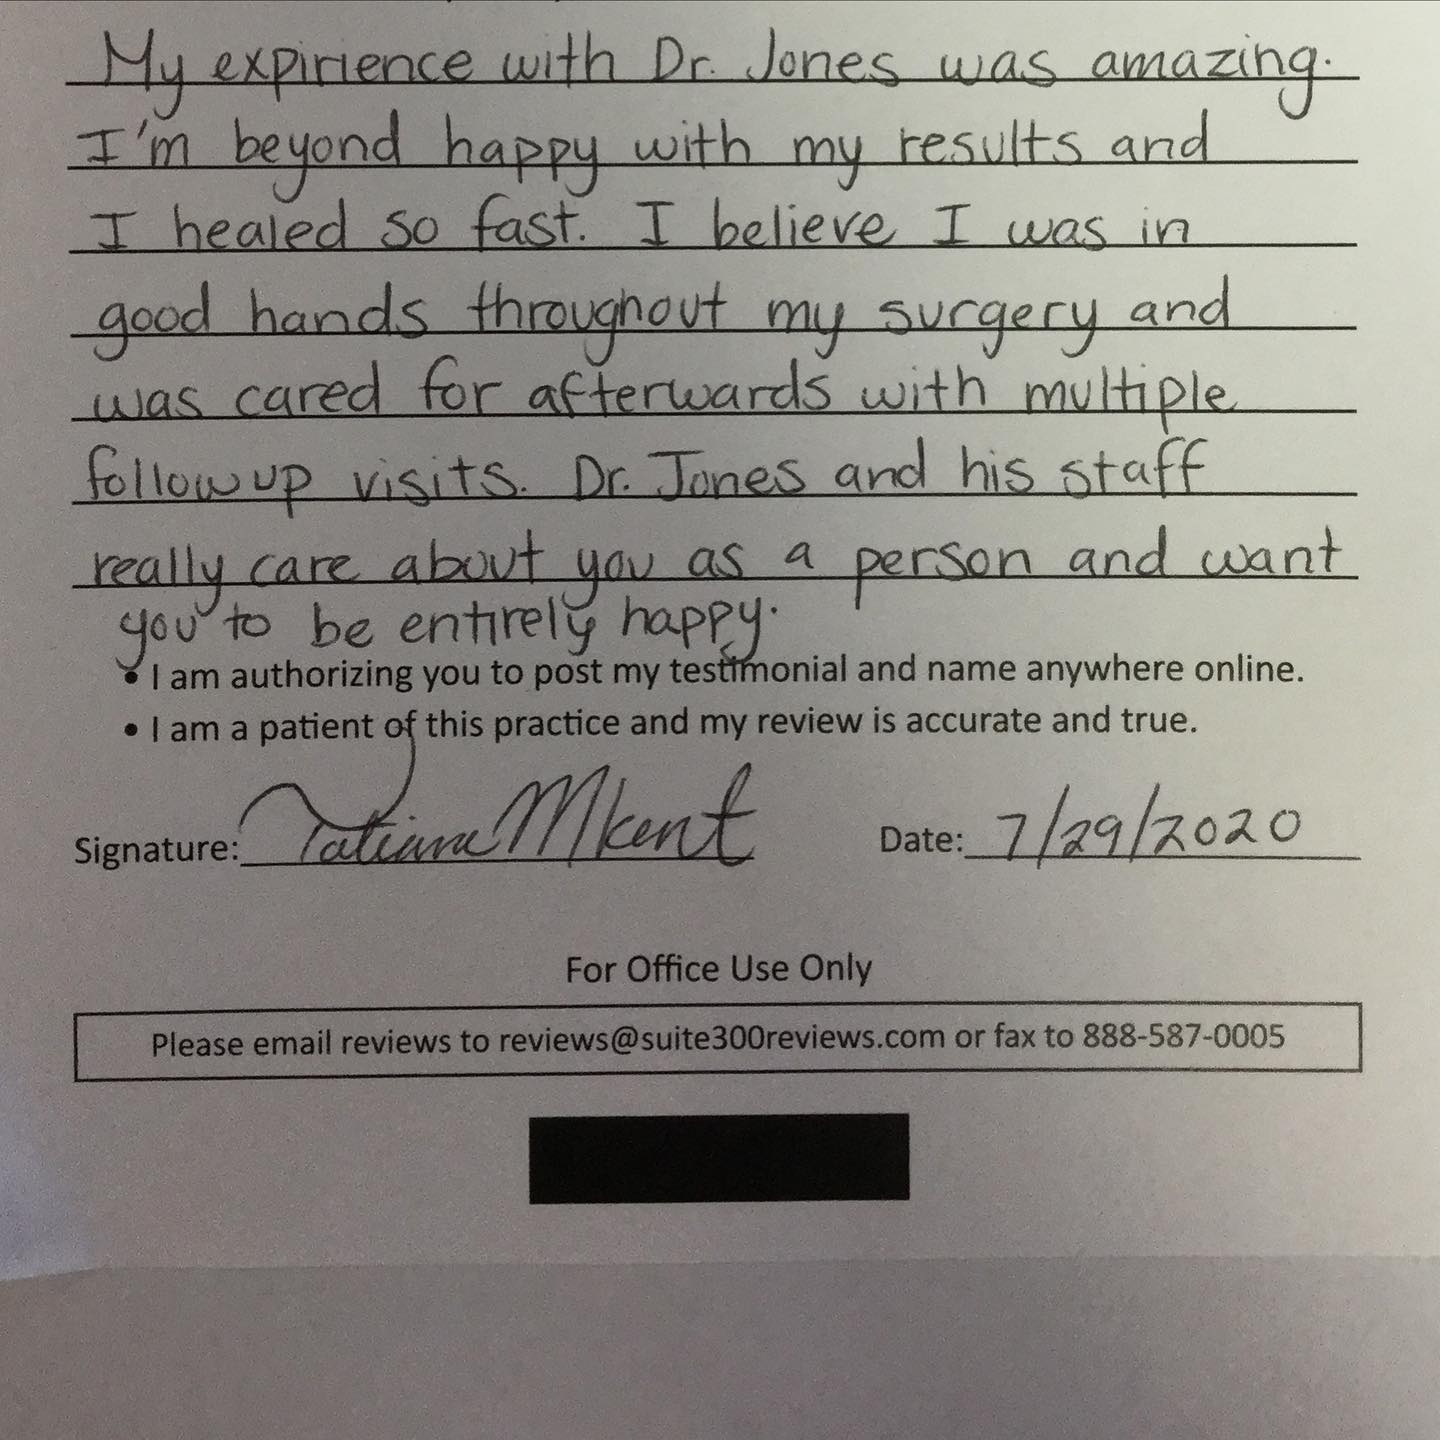 My expirience with Dr. Jones was amazing.
I'm beyond happy with my results and
I healed so fast. I believe I was in
good hands throughout my surgery and
was cared for afterwards with multiple
followup visits. Dr. Jones and his staff
really care about you as a person and want
you to be entirely happy.
• I am authorizing you to post my testimonial and name anywhere online.
• I am a patient of this practice and my review is accurate and true.
Signature: Tatiana M Kent Date: 7/29/2020
For Office Use Only
Please email reviews to reviews@suite300reviews.com or fax to 888-587-0005